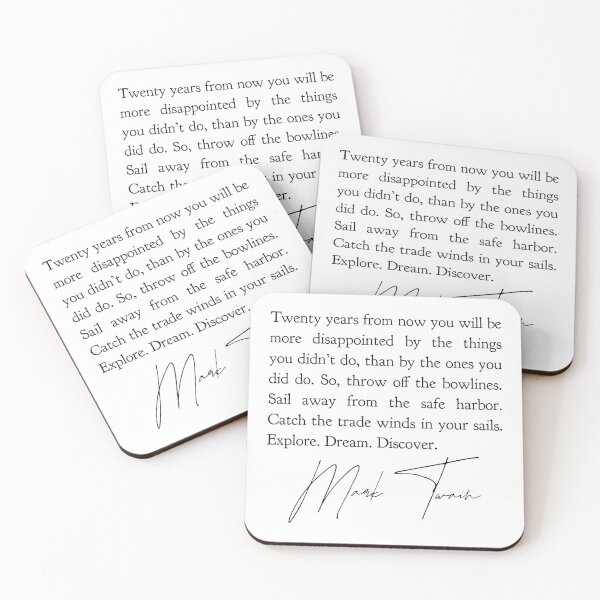 Twenty years from now you will be
more disappointed by the things
you didn't do, than by the ones you
did do. So, throw off the bowlines.
Sail away from the safe harbor.
Catch the trade winds in your
Twenty years from now you will be
more disappointed by the things
you didn't do, than by the ones you
did do. So, throw off the bowlines.
Sail away from the safe harbor.
Catch the trade winds in your sails.
Explore. Dream. Discover.
Twenty years from now you will be
more disappointed by the things
you didn't do, than by the ones you
did do. So, throw off the bowlines.
Sail away from the safe harbor.
Catch the trade winds in your sails.
Explore. Dream. Discover.
Mark
Twenty years from now you will be
more disappointed by the things
you didn't do, than by the ones you
did do. So, throw off the bowlines.
Sail away from the safe harbor.
Catch the trade winds in your sails.
Explore. Dream. Discover.
Mark Twain